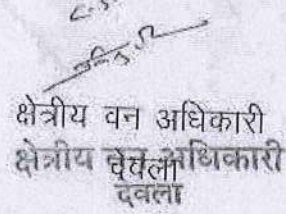 क्षेत्रीय वन अधिकारी
क्षेत्रीय वन अधिकारी
देवला
देवला